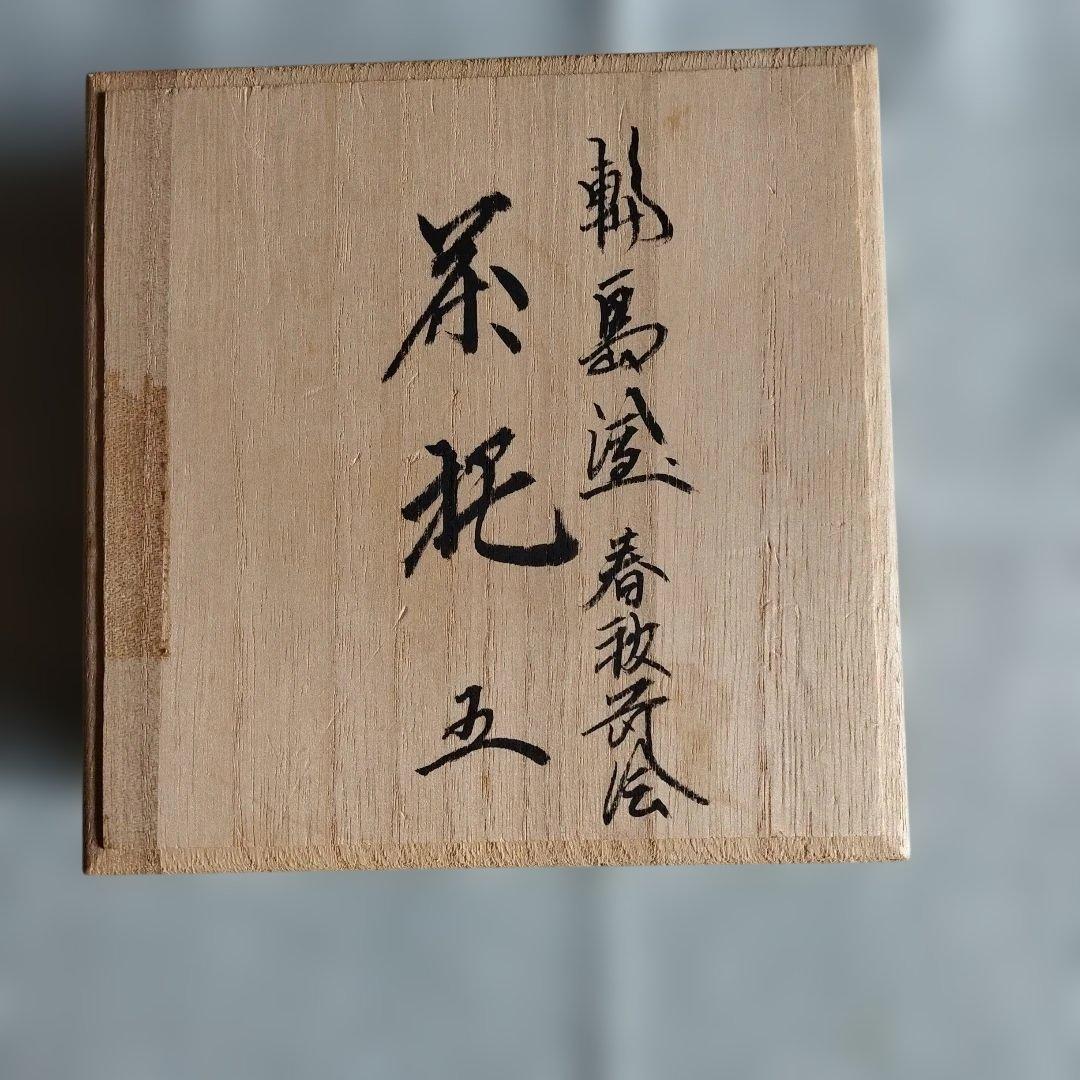 輪島塗 春秋蒔絵
茶托 五